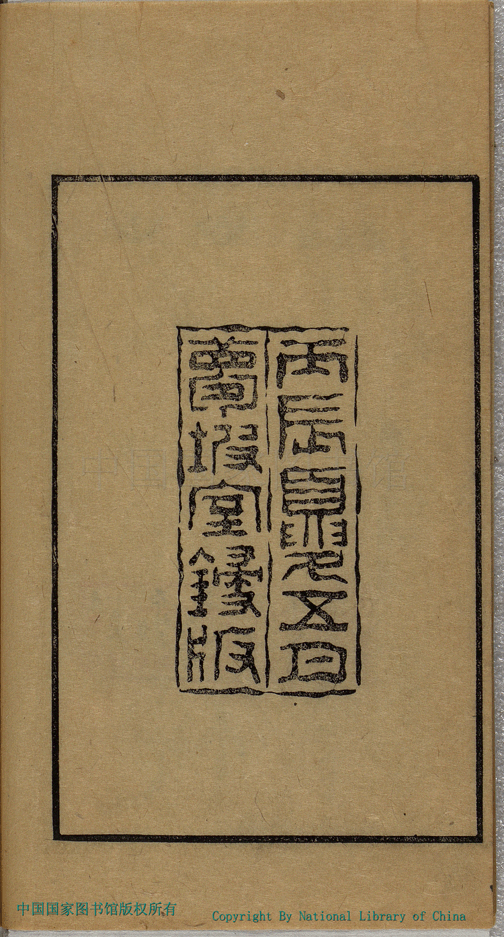 丙辰夏五月
夢坡室鋟版
中国国家图书馆版权所有
Copyright By National Library of China